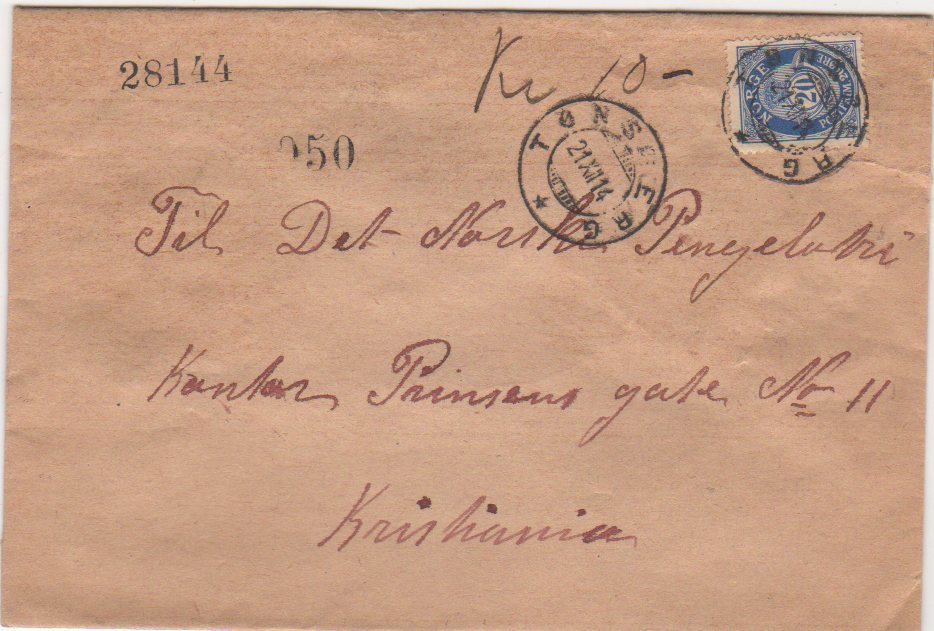 28144
Kr 10-
NORGE 20 POSTFRIM. 20 ØRE
TØNSBERG
21 XII 14
TØNSBERG
050
Til Det Norske Pengelotri
Kontor Prinsens gate No 11
Kristiania